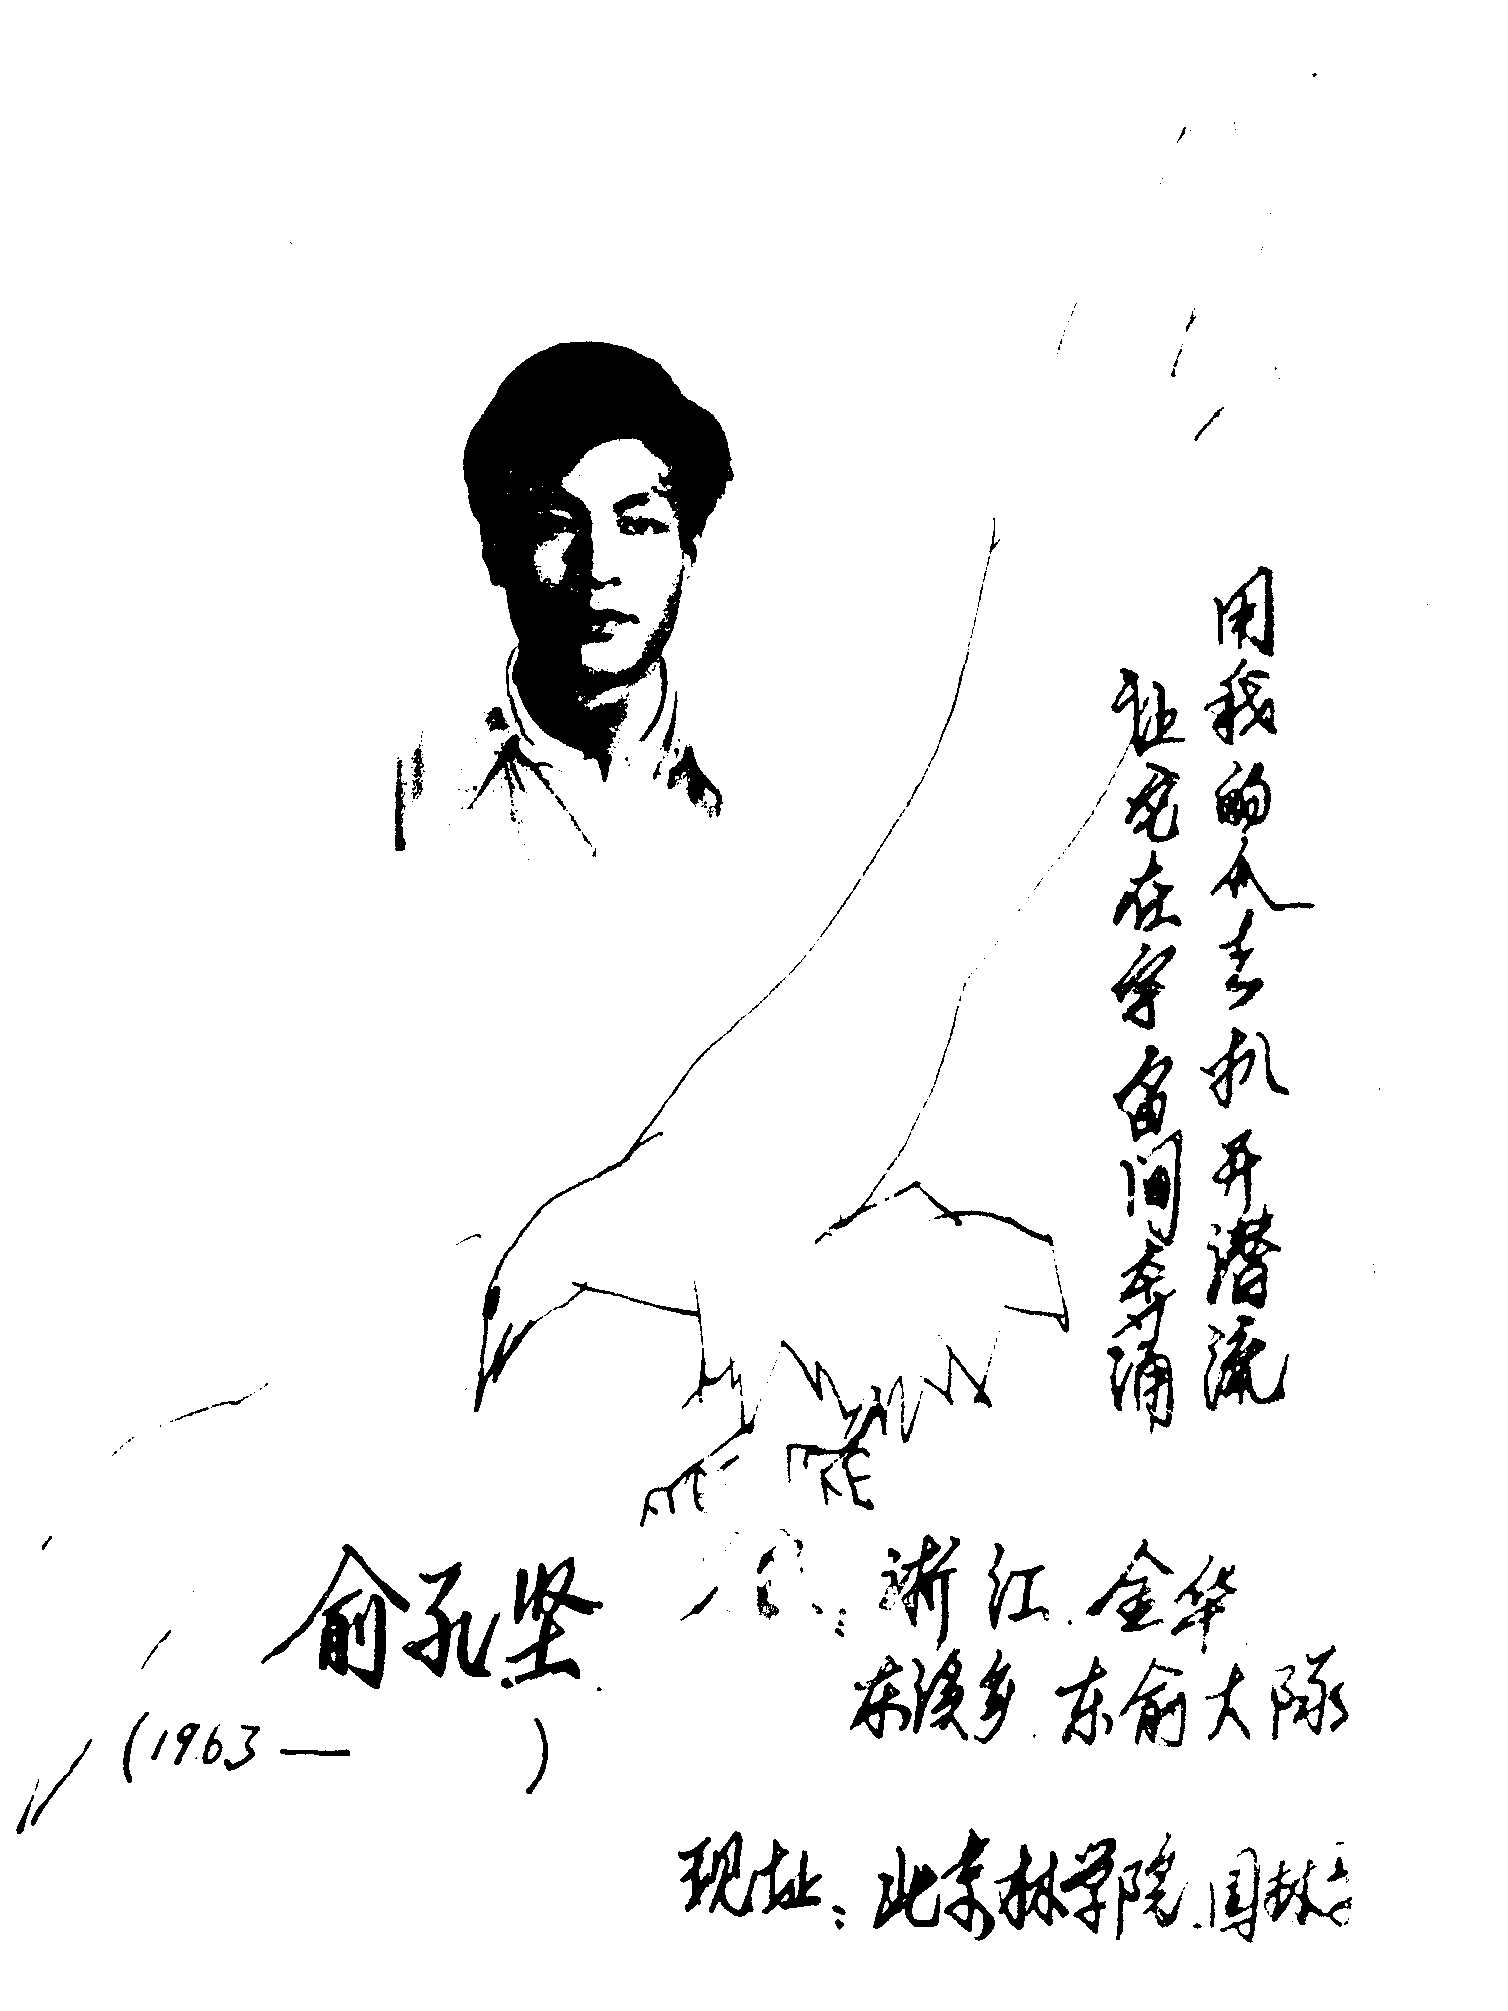 用我的爪去扒开潜流
让它在宇宙间奔涌
俞孔坚
(1963— )
浙江.金华
东溪乡.东俞大队
现址：北京林学院.园林系